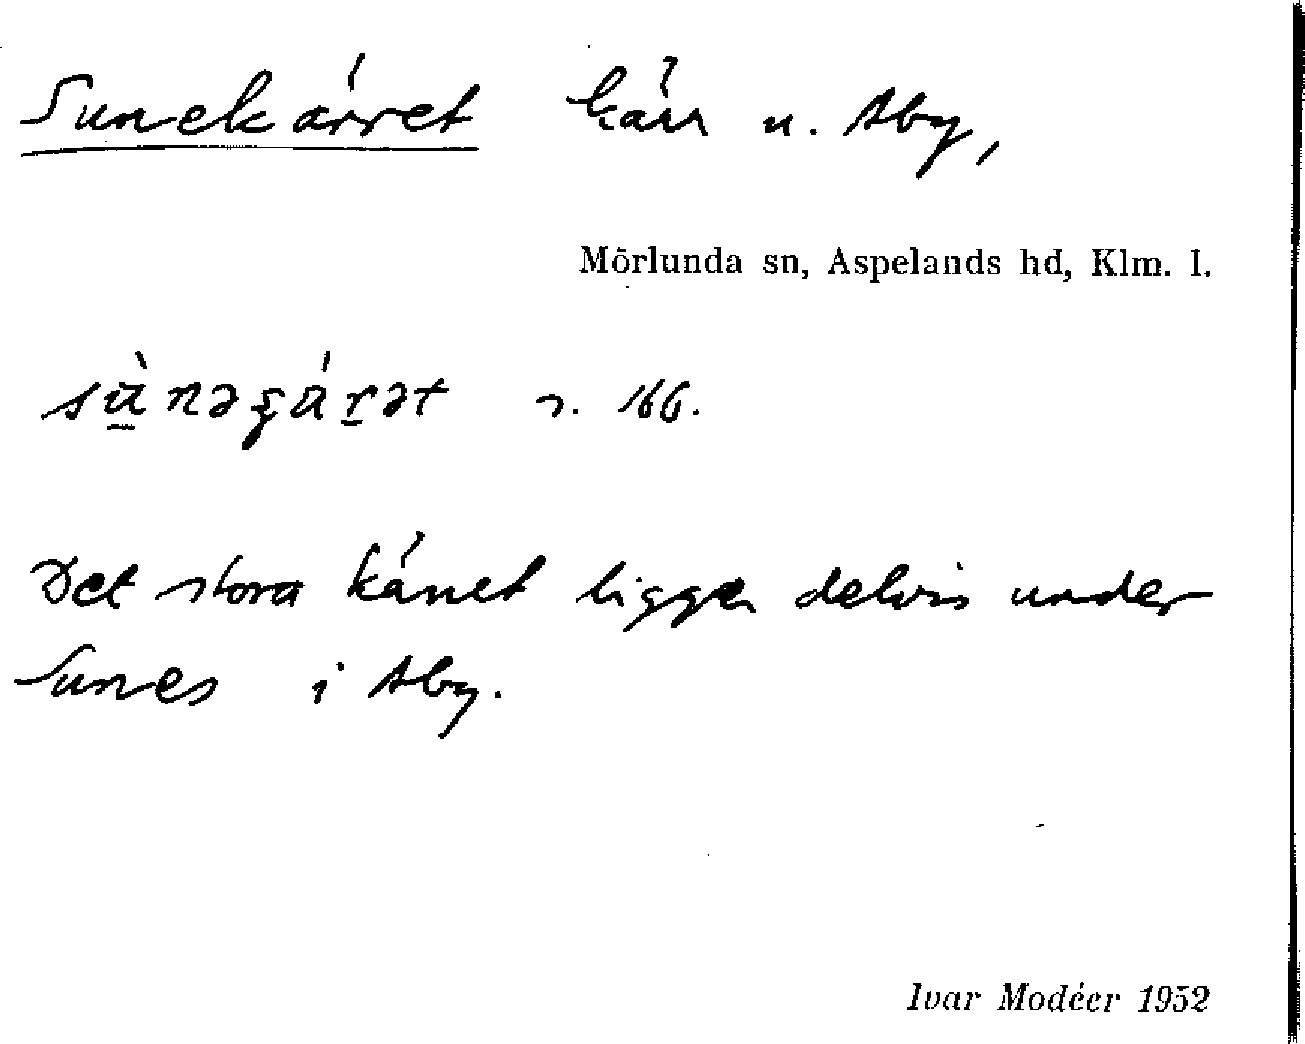 Sunekärret kärr n. Åby,
Mörlunda sn, Aspelands hd, Klm. l.
Det stora kärret ligger delvis under
Sunes i Åby.
Ivar Modéer 1952